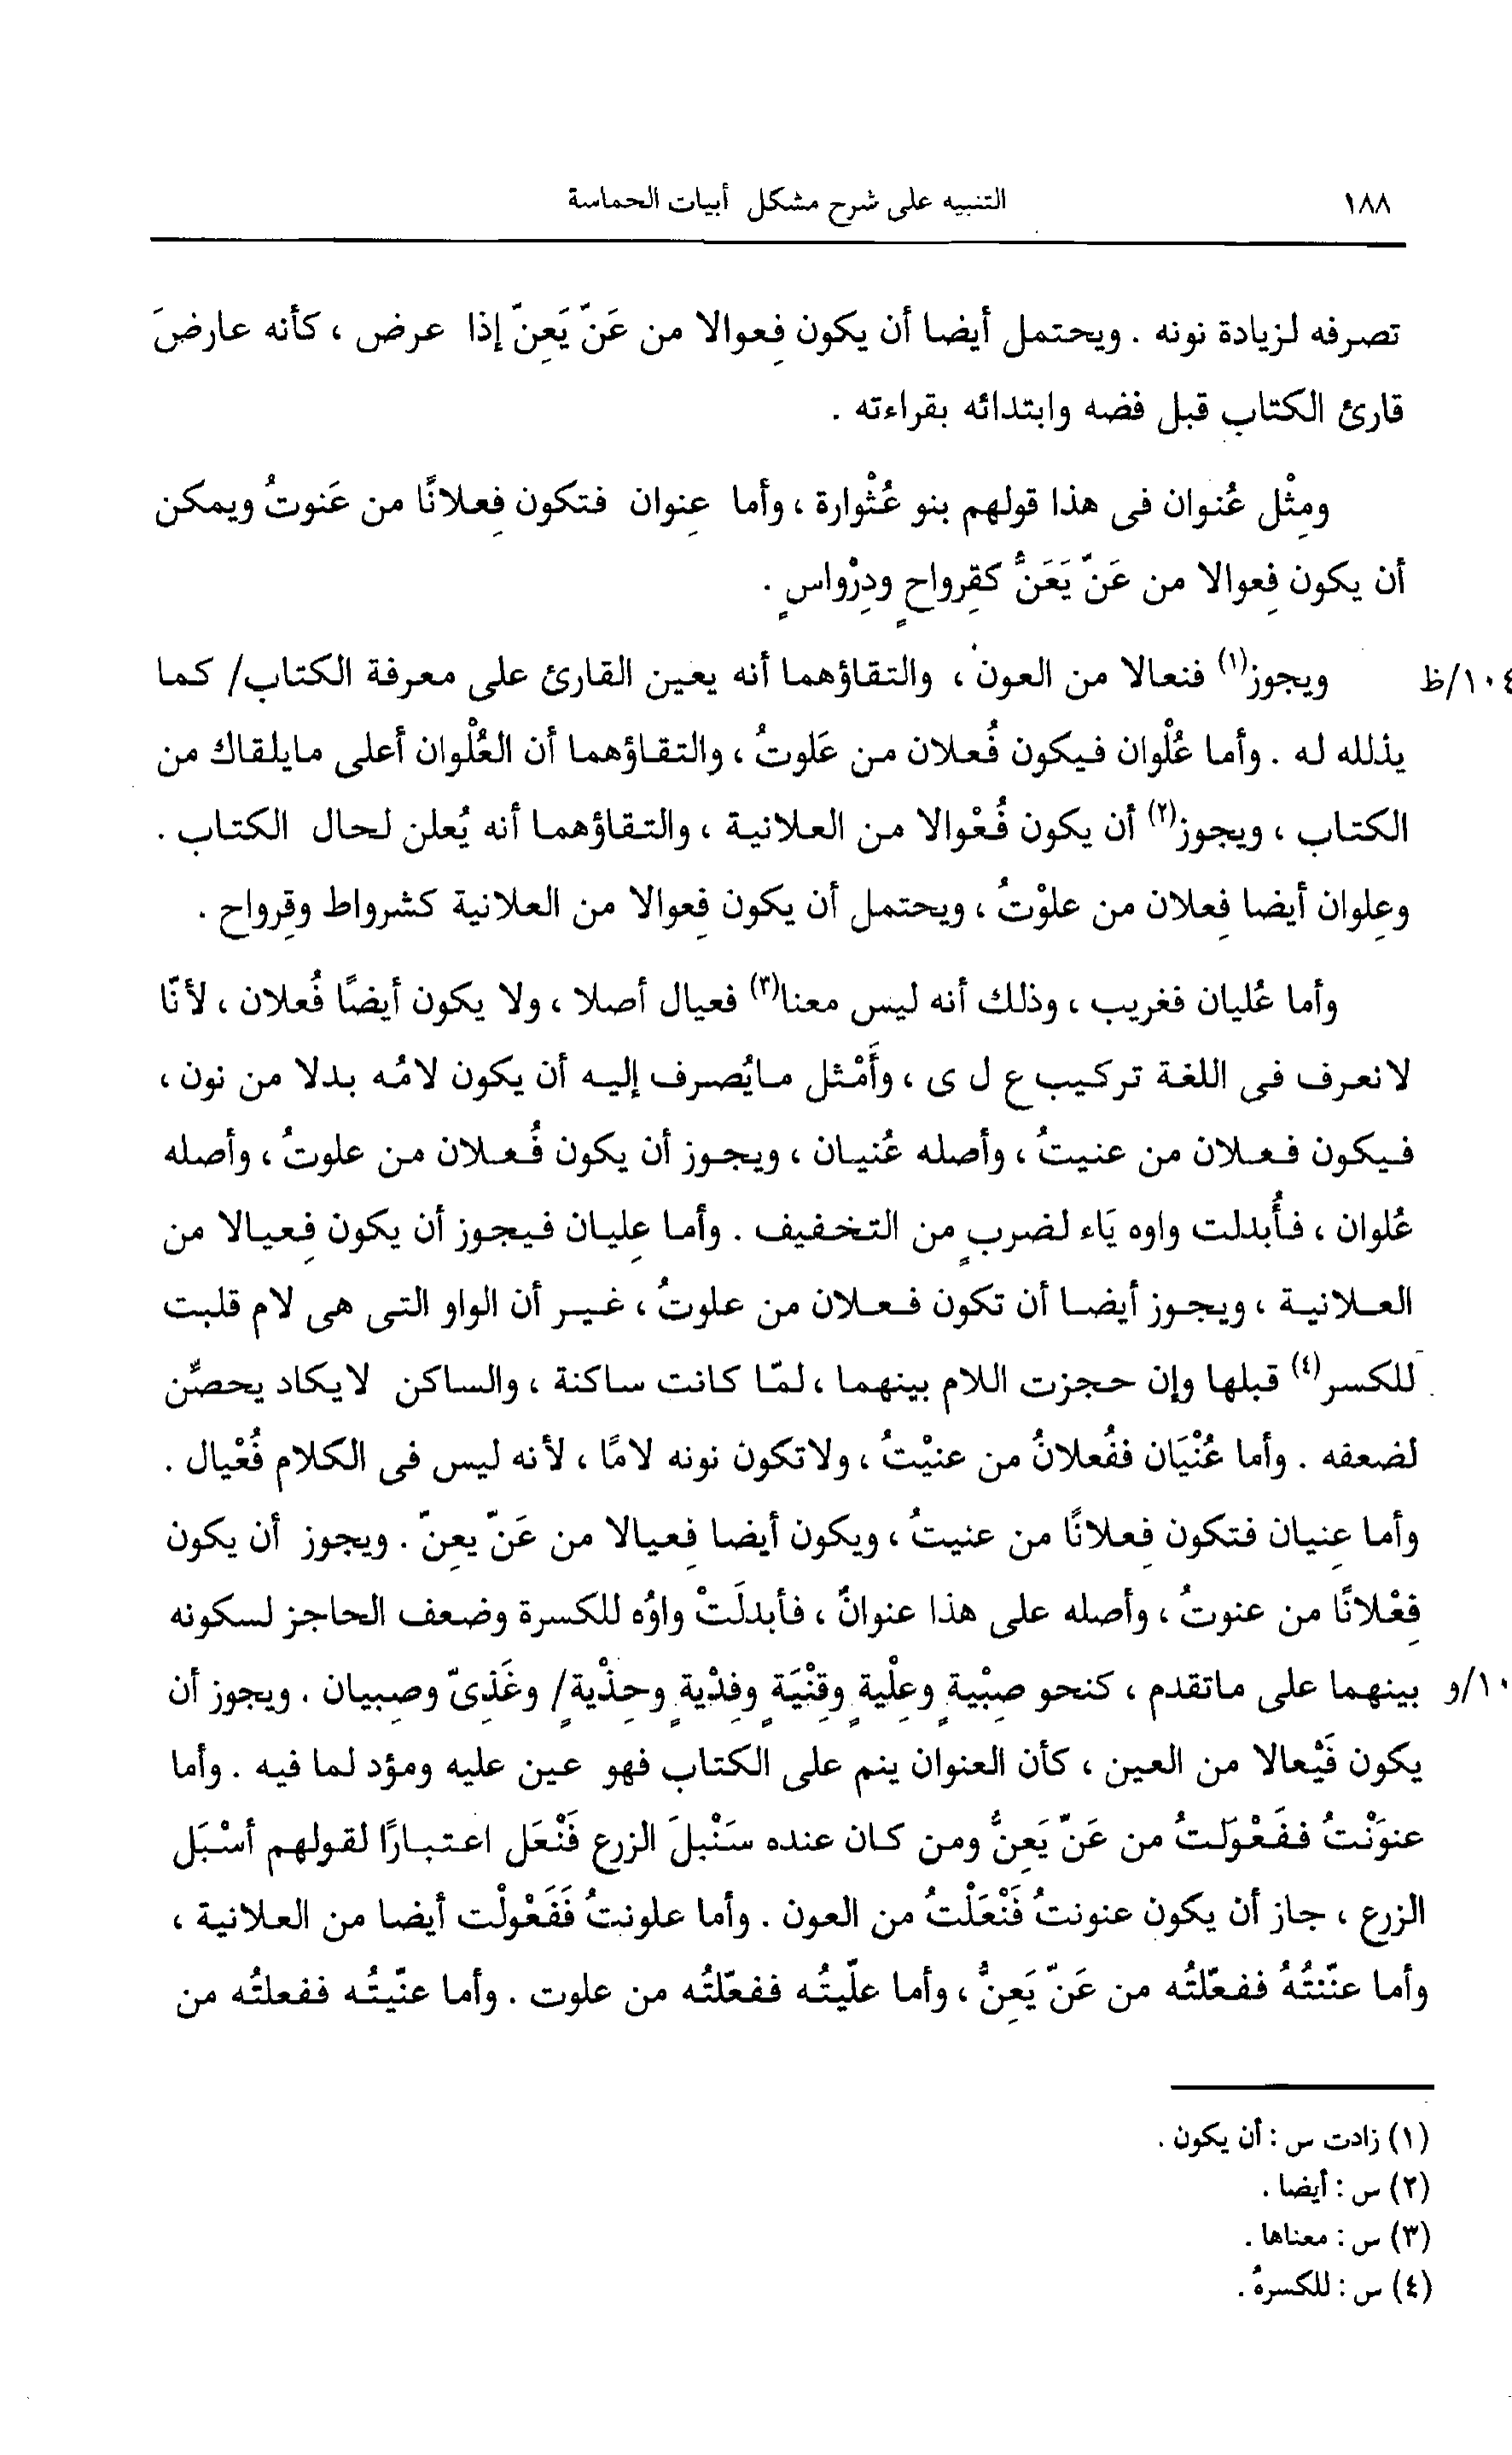 ١٨٨ التنبيه على شرح مشكل أبيات الحماسة
تصرفه لزيادة نونه . ويحتمل أيضا أن يكون فِعوالا من عَنّ يَعِنّ إذا عرض ، كأنه عارضَ
قارئ الكتاب قبل فضه وابتدائه بقراءته .
ومِثْل عُنوان فى هذا قولهم بنو عُثْوارة ، وأما عِنوان فتكون فِعلانًا من عَنوتُ ويمكن
أن يكون فِعوالا من عَنّ يَعَنُّ كقِرواحٍ ودِرْواسٍ .
ويجوز(١) فنعالا من العون ، والتقاؤهما أنه يعين القارئ على معرفة الكتاب/ كما ١٠٤/ظ
يذلله له . وأما عُلْوان فيكون فُعلان من عَلوتُ ، والتقاؤهما أن العُلْوان أعلى مايلقاك من
الكتاب ، ويجوز(٢) أن يكون فُعْوالا من العلانية ، والتقاؤهما أنه يُعلن لحال الكتاب .
وعِلوان أيضا فِعلان من علوْتُ ، ويحتمل أن يكون فِعوالا من العلانية كشرواط وقِرواح .
وأما عُليان فغريب ، وذلك أنه ليس معنا(٣) فعيال أصلا ، ولا يكون أيضًا فُعلان ، لأنّا
لانعرف فى اللغة تركيب ع ل ى ، وأَمْثل مايُصرف إليه أن يكون لامُه بدلا من نون ،
فيكون فعلان من عنيتُ ، وأصله عُنيان ، ويجوز أن يكون فُعلان من علوتُ ، وأصله
عُلوان ، فأُبدلت واوه يَاء لضربٍ من التخفيف . وأما عِليان فيجوز أن يكون فِعيالا من
العلانية ، ويجوز أيضا أن تكون فعلان من علوتُ ، غير أن الواو التى هى لام قلبت
للكسر(٤) قبلها وإن حجزت اللام بينهما ، لمّا كانت ساكنة ، والساكن لايكاد يحصِّن
لضعفه . وأما عُنْيَان ففُعلانُ من عنيْتُ ، ولاتكون نونه لامًا ، لأنه ليس فى الكلام فُعْيال .
وأما عِنيان فتكون فِعلانًا من عنيتُ ، ويكون أيضا فِعيالا من عَنّ يعِنّ . ويجوز أن يكون
فِعْلانًا من عنوتُ ، وأصله على هذا عنوانٌ ، فأبدلَتْ واوُه للكسرة وضعف الحاجز لسكونه
بينهما على ماتقدم ، كنحو صِبْيةٍ وعِلْيةٍ وقِنْيَةٍ وفِدْيةٍ وحِذْيةٍ/ وغَذِىّ وصِبيان . ويجوز أن ١٠/و
يكون فَيْعالا من العين ، كأن العنوان ينم على الكتاب فهو عين عليه ومؤد لما فيه . وأما
عنوَنْتُ ففَعْوَلتُ من عَنّ يَعِنُّ ومن كان عنده سَنْبلَ الزرع فَنْعَل اعتبارًا لقولهم أسْبَل
الزرع ، جاز أن يكون عنونتُ فَنْعَلْتُ من العون . وأما علونتُ فَفَعْولْت أيضا من العلانية ،
وأما عنّنتُهُ ففعّلتُه من عَنّ يَعِنُّ ، وأما علّيتُه ففعّلتُه من علوت . وأما عنّيتُه ففعلتُه من
(١) زادت س : أن يكون .
(٢) س : أيضا .
(٣) س : معناها .
(٤) س : للكسرهُ .